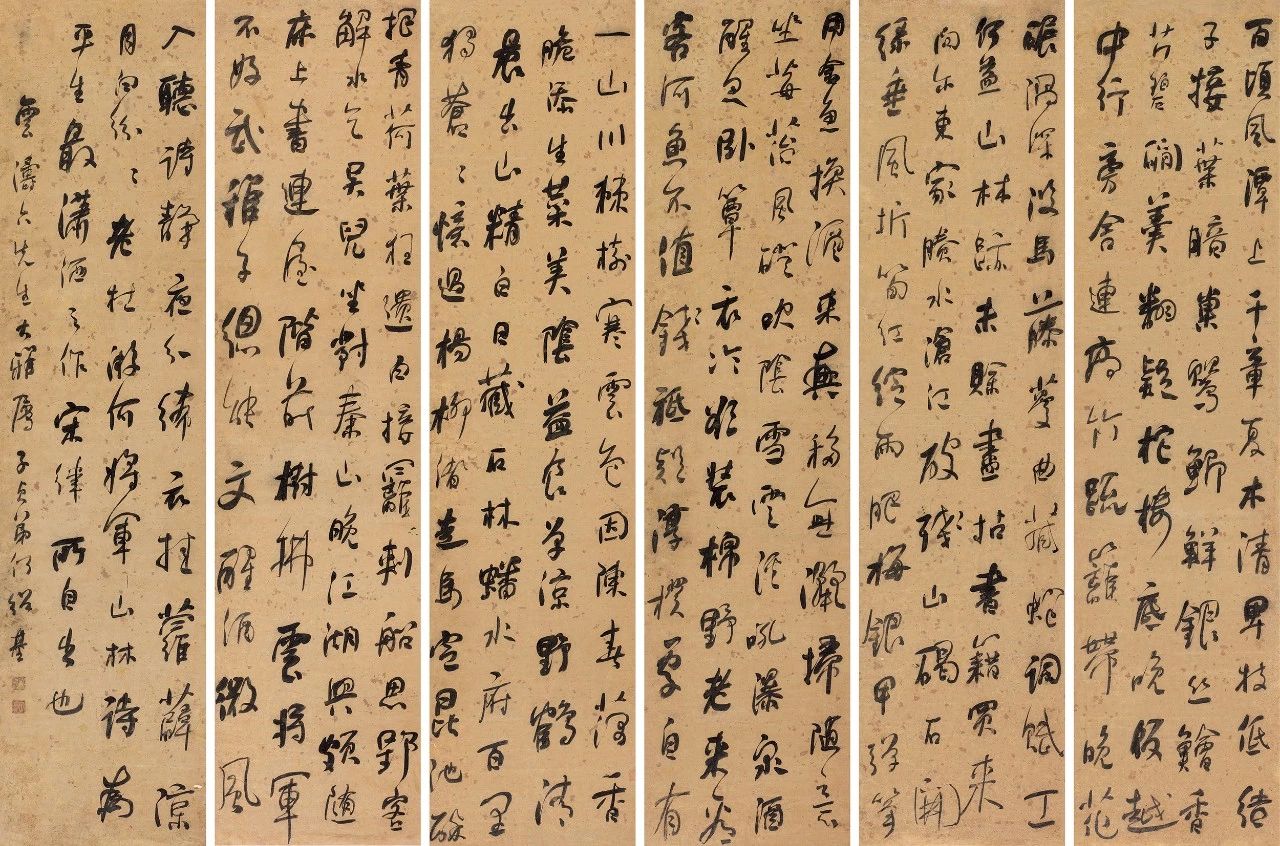 百頃風潭上千章夏木清卑枝低結
子接葉暗巢鶯鯽鮮銀絲鱠香
芹碧澗羹翻疑柁樓底晚飯越
中行旁舍連高竹疏籬帶晚花
碾渦深沒馬藤蔓曲藏蛇詞賦工
何益山林跡未賒盡拈書籍賣來
向尔東家賸水滄江破殘山碣石開
綠垂風折筍紅綻雨肥梅銀甲彈箏
用金魚換酒來興移無灑掃隨意
坐莓苔風磴吹陰雪雲吼瀑泉酒
醒思臥簟衣冷欲裝棉野老來看
客河魚不值錢祗疑淳樸處自有
一山川棘樹寒雲色因陳春藕香
脆添生菜美陰益食單涼野鶴清
晨出山精白日藏石林蟠水府百里
獨蒼々憶過楊柳渚走馬定昆池醉
把青荷葉狂遺白接䍦刺船思郢客
解水乞吳兒坐對秦山晚江湖興頗隨
床上書連屋階前樹拂雲將軍
不好武稚子總能文醒酒微風
入聽詩靜夜分絺衣挂蘿薜涼
月白紛々老杜游何將軍山林詩為
平生最瀟洒之作宋律所自出也
雲濤六先生大雅屬子貞弟何紹基